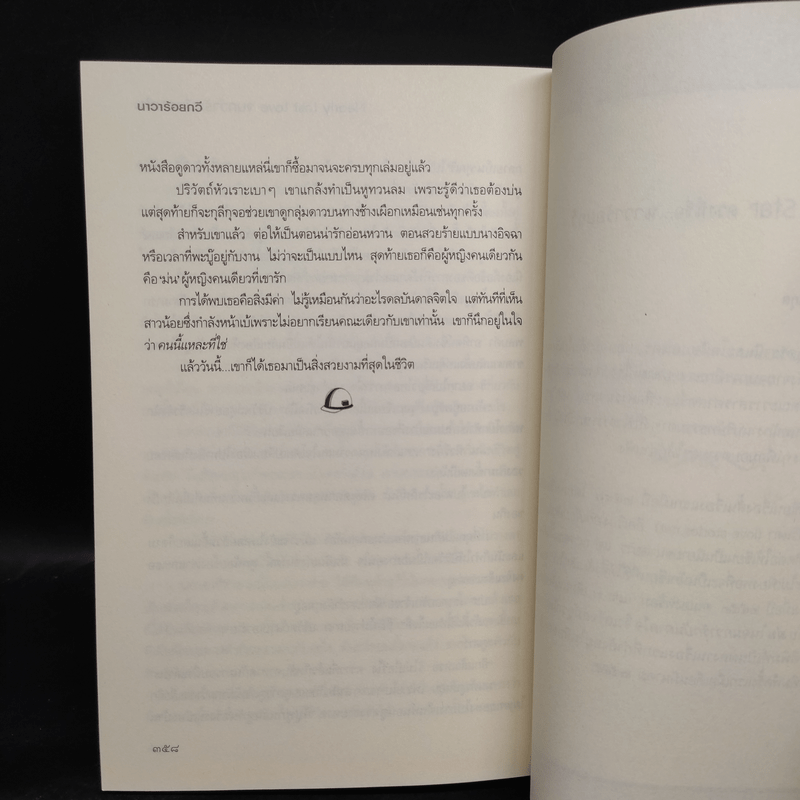 นาวาร้อยกวี
หนังสือดูดาวทั้งหลายแหล่นี่เขาก็ซื้อมาจนจะครบทุกเล่มอยู่แล้ว
ปริวัตถ์หัวเราะเบาๆ เขาแกล้งทำเป็นหูทวนลม เพราะรู้ดีว่าเธอต้องบ่น
แต่สุดท้ายก็จะกุลีกุจอช่วยเขาดูกลุ่มดาวบนทางช้างเผือกเหมือนเช่นทุกครั้ง
สำหรับเขาแล้ว ต่อให้เป็นตอนน่ารักอ่อนหวาน ตอนสวยร้ายแบบนางอิจฉา
หรือเวลาที่พะบู๊อยู่กับงาน ไม่ว่าจะเป็นแบบไหน สุดท้ายเธอก็คือผู้หญิงคนเดียวกัน
คือ 'ม่น' ผู้หญิงคนเดียวที่เขารัก
การได้พบเธอคือสิ่งมีค่า ไม่รู้เหมือนกันว่าอะไรดลบันดาลจิตใจ แต่ทันทีที่เห็น
สาวน้อยซึ่งกำลังหน้าเบ้เพราะไม่อยากเรียนคณะเดียวกับเขาเท่านั้น เขาก็นึกอยู่ในใจ
ว่า คนนี้แหละที่ใช่
แล้ววันนี้...เขาก็ได้เธอมาเป็นสิ่งสวยงามที่สุดในชีวิต
๓๕๘